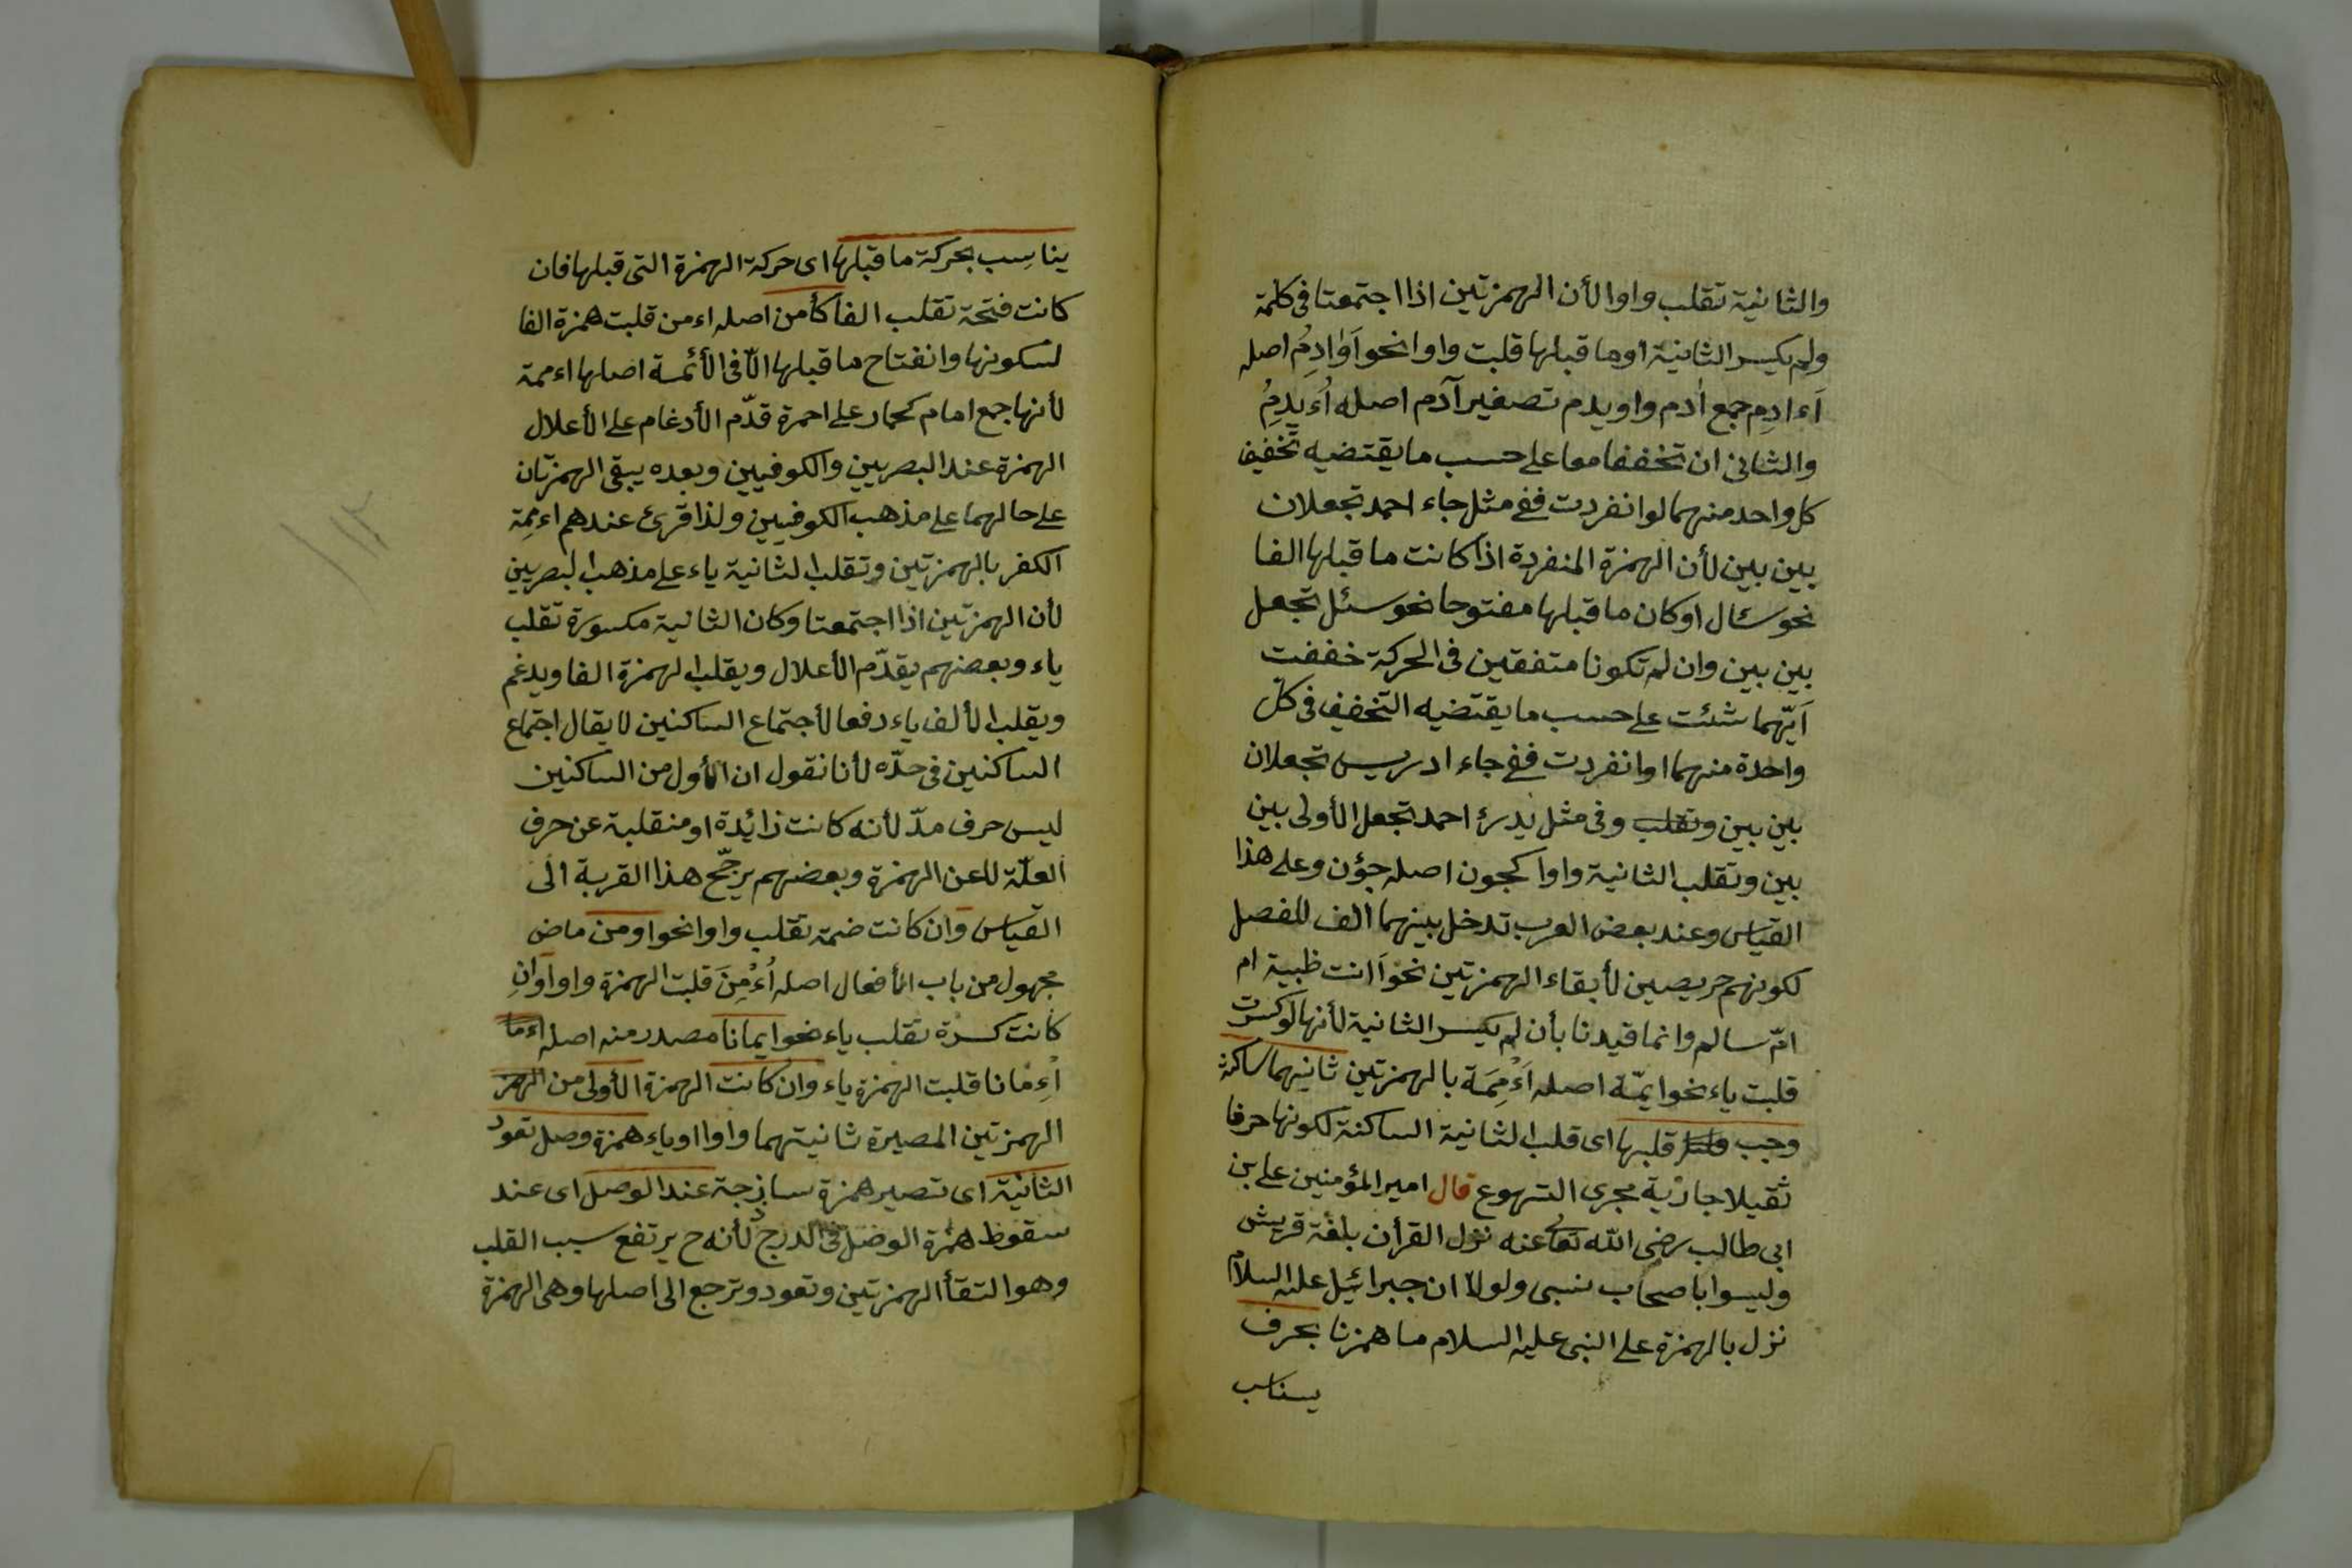 والثانية تقلب واوا لأن الهمزتين اذا اجتمعتا فى كلمة
ولم يكسر الثانية او ما قبلها قلبت واوا نحو اَوَادِمُ اصله
اَءادِم جمع اٰدم واويدم تصغير آدم اصله اُءيدِمُ
والثانى ان تخففا معا على حسب ما يقتضيه تخفيف
كل واحد منهما لو انفردت ففى مثل جاء احمد تجعلان
بين بين لأن الهمزة المنفردة اذا كانت ما قبلها الفا
نحو سئال او كان ما قبلها مفتوحا نحو سئل تجعل
بين بين وان لم تكونا متفقين فى الحركة خففت
اَيّهما شئت على حسب ما يقتضيه التخفيف فى كل
واحدة منهما اوا نفردت ففى جاء ادريس تجعلان
بين بين وتقلب وفى مثل يدرئ احمد تجعل الأولى بين
بين وتقلب الثانية واوا كجون اصله جؤن وعلى هذا
القياس وعند بعض العرب تدخل بينهما الف للفصل
لكونهم حريصين لأبقاء الهمزتين نحو اَانت ظبية ام
امّ سالم وانما قيدنا بأن لم يكسر الثانية لأنها لو كسرت
قلبت ياء نحو ايمّة اصله اَءْمِمَة بالهمزتين ثانيهما ساكنة
وجب قلبها اى قلب الثانية الساكنة لكونها حرفا
ثقيلا جارية مجرى التهوع قال امير المؤمنين على بن
ابى طالب رضى الله تعا عنه نزل القرأن بلغة قريش
وليسوا باصحاب نبى ولولا ان جبرائيل عليه السلام
نزل بالهمزة على النبى عليه السلام ما همزنا بحرف
يناسب
يناسِب بحركة ما قبلها اى حركة الهمزة التى قبلها فان
كانت فتحة تقلب الفا كأمن اصله اءمن قلبت همزة الفا
لسكونها وانفتاح ما قبلها الّا فى الأئمة اصلها اءممة
لأنها جمع امام كحمار على احمرة قدّم الأدغام على الأعلال
الهمزة عند البصريين والكوفيين وبعده يبقى الهمزتان
على حالهما على مذهب الكوفيين ولذا قرئ عندهم اءمِّة
الكفر بالهمزتين وتقلب الثانية ياء على مذهب البصريين
لأن الهمزتين اذا اجتمعتا وكان الثانية مكسورة تقلب
ياء وبعضهم يقدّم الأعلال ويقلب الهمزة الفا ويدغم
ويقلب الألف ياء دفعا لأجتماع الساكنين لا يقال اجتماع
الساكنين فى حدّه لأنا نقول ان الأول من الساكنين
ليس حرف مدّ لأنه كانت زائيدة او منقلبة عن حرف
العلّة لا عن الهمزة وبعضهم يرجّح هذا القربة الى
القياس وان كانت ضمة تقلب واوا نحو اومن ماض
مجهول من باب الأفعال اصله اُءْمِنَ قلبت الهمزة واوا وَانِ
كانت كسرة تقلب ياء نحو ايمانا مصدر منه اصله اءما
اْءِمانا قلبت الهمزة ياء وان كانت الهمزة الأولى من الهمز
الهمزتين المصيرة ثانيتهما واوا او ياء همزة وصل تعود
الثانية اى تصير همزة ساذجة عند الوصل اى عند
سقوط همزة الوصل فى الدرج لأنه ح يرتفع سبب القلب
وهو التقأ الهمزتين وتعود وترجع الى اصلها وهى الهمزة